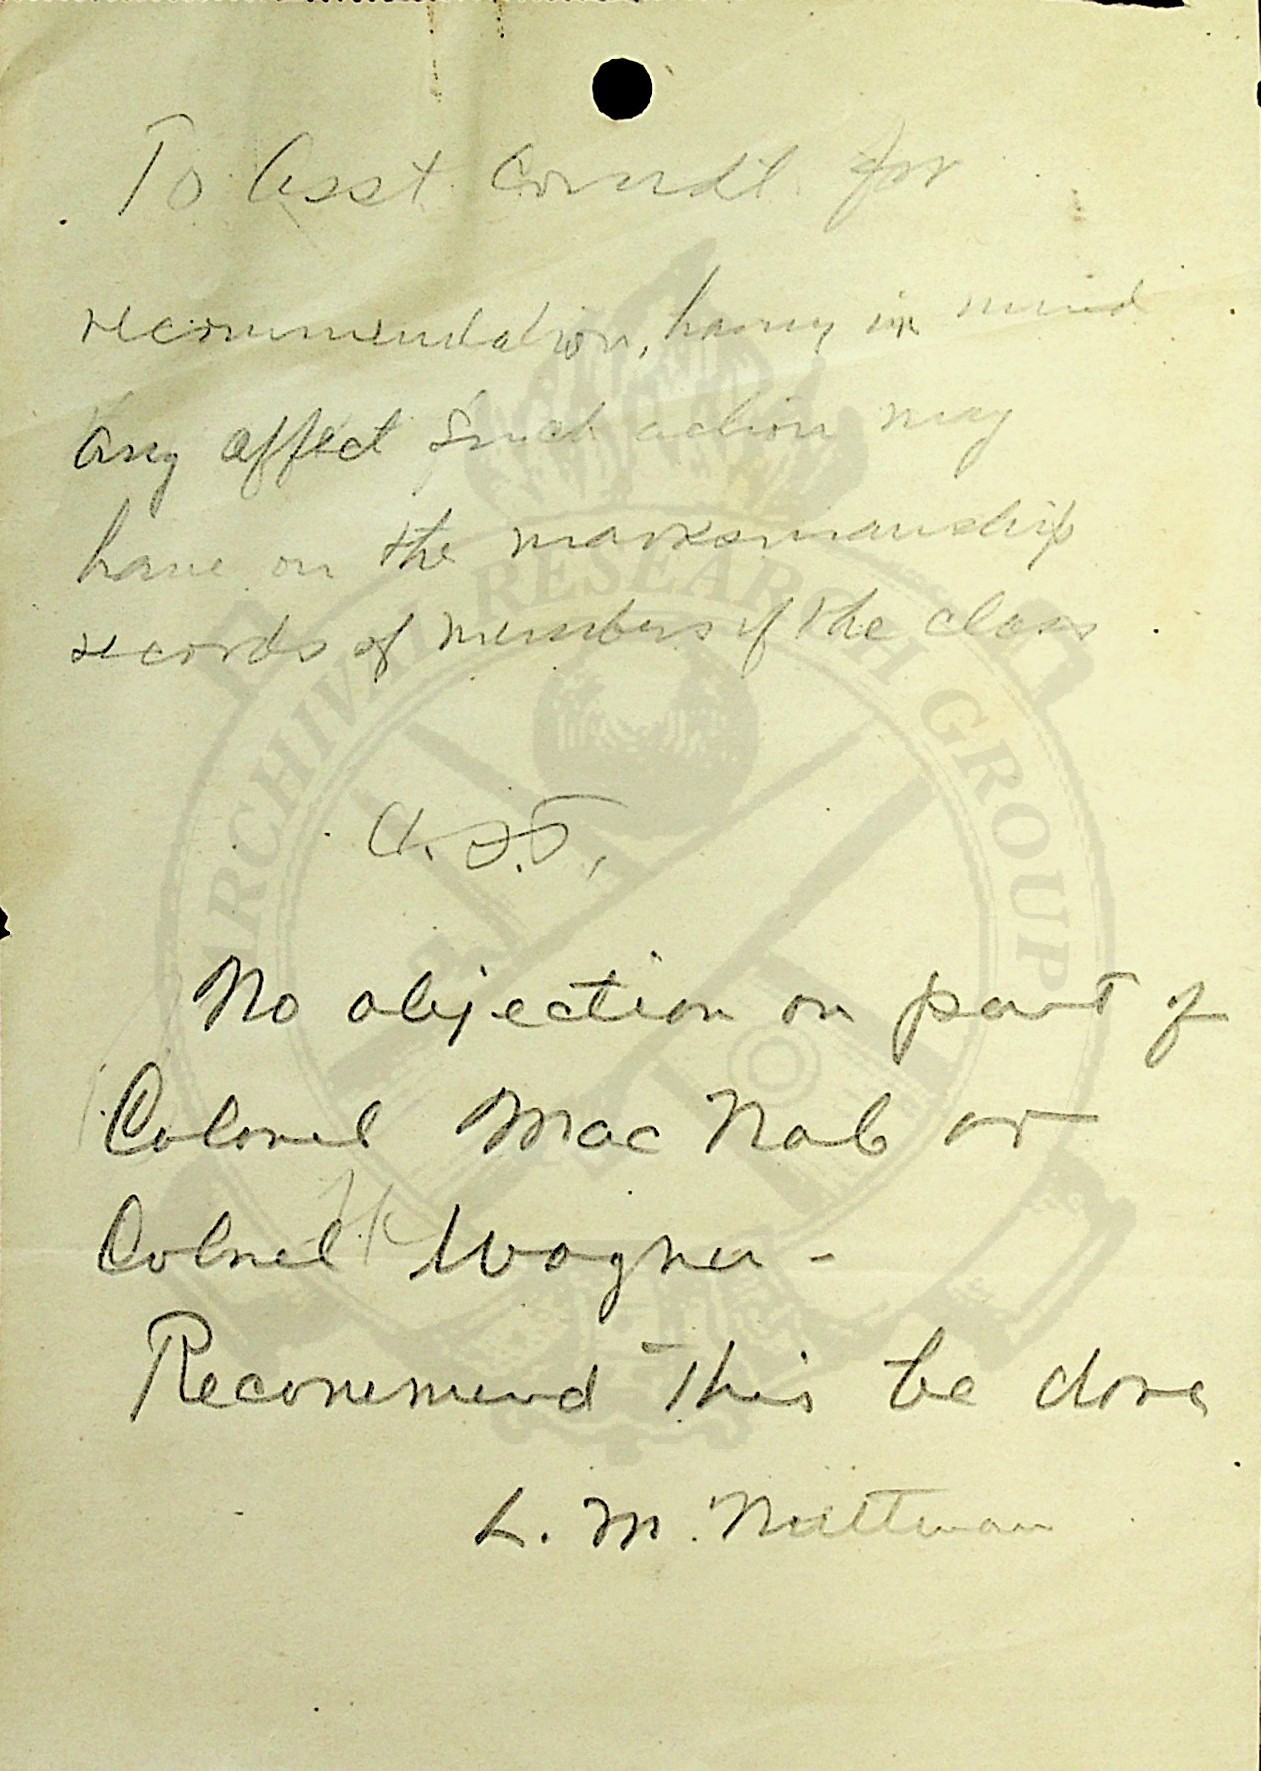 To Asst Comdt for
recommendation, having in mind
any affect such action may
have on the marksmanship
records of members of the class
No objection on part of
Colonel MacNab or
Colonel Wagner -
Recommend this be done
L. M.
ARCHIVAL RESEARCH GROUP